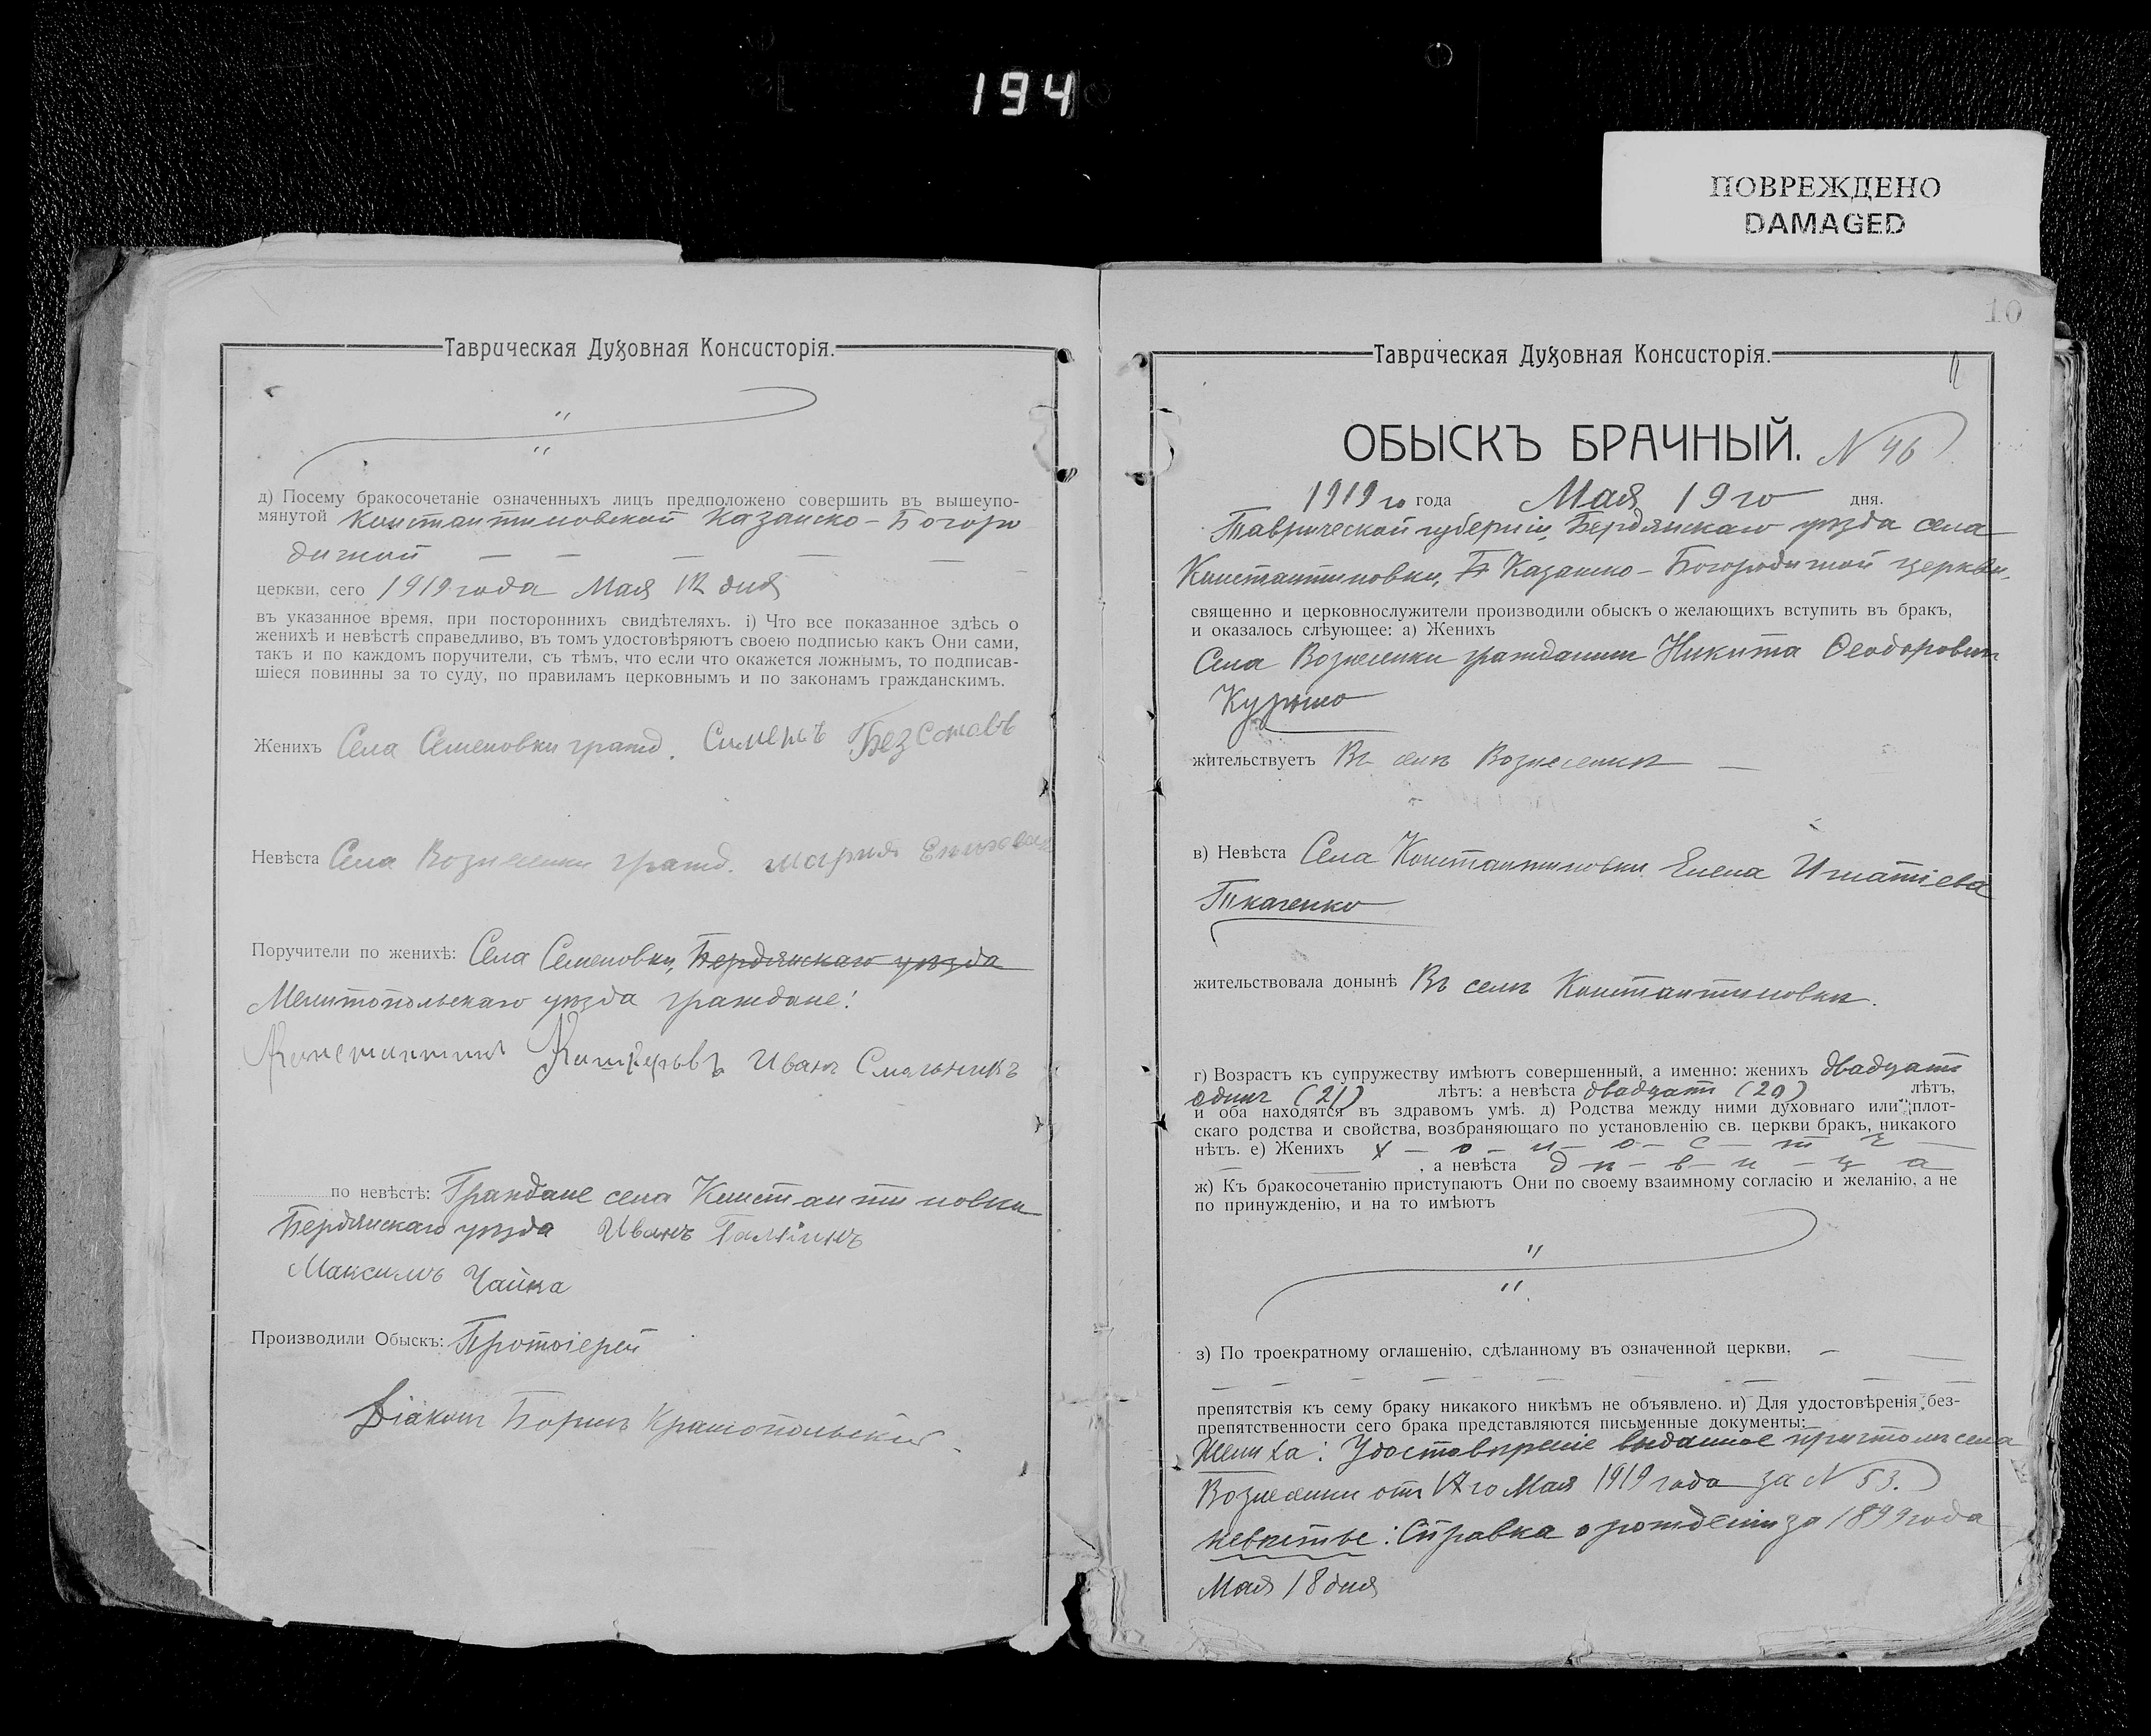 194
ПОВРЕЖДЕНО
DAMAGED
Таврическая Духовная Консисторія.
д) Посему бракосочетаніе означенныхъ лицъ предположено совершить въ вышеупо-
мянутой Константиновской Казанско-Богоро
дичной
церкви, сего 1919 года Мая 12 дня
въ указанное время, при постороннихъ свидѣтеляхъ. і) Что все показанное здѣсь о
женихѣ и невѣстѣ справедливо, въ томъ удостовѣряютъ своею подписью какъ Они сами,
такъ и по каждомъ поручители, съ тѣмъ, что если что окажется ложнымъ, то подписав-
шіеся повинны за то суду, по правиламъ церковнымъ и по законамъ гражданскимъ.
Женихъ Села Семеновки гражд. Сименъ
Невѣста Села Вознесенки гражд. Мария
Поручители по женихѣ: Села Семеновки, Бердянскаго уѣзда
Мелитопольскаго уѣзда граждане:
Константинъ Иванъ
по невѣстѣ: Граждане села Константиновки
Бердянскаго уѣзда Иванъ
Максимъ Чайка
Производили Обыскъ: Протоіерей
Діаконъ Борисъ Краснопольскій
10
Таврическая Духовная Консисторія.
ОБЫСКЪ БРАЧНЫЙ. N 46
1919 го года Мая 19 го дня.
Таврической губерніи, Бердянскаго уѣзда села
Константиновки, Казанско-Богородичной церкви,
священно и церковнослужители производили обыскъ о желающихъ вступить въ бракъ,
и оказалось слѣующее: а) Женихъ
Села Вознесенки гражданинъ Никита Ѳеодоровичъ
жительствуетъ Въ селѣ Вознесенкѣ
в) Невѣста Села Константиновки Елена Игнатіева
Ткаченко
жительствовала донынѣ Въ селѣ Константиновкѣ.
г) Возрастъ къ супружеству имѣютъ совершенный, а именно: женихъ двадцать
одинъ (21) лѣтъ: а невѣста двадцать (20) лѣтъ,
и оба находятся въ здравомъ умѣ. д) Родства между ними духовнаго или плот-
скаго родства и свойства, возбраняющаго по установленію св. церкви бракъ, никакого
нѣтъ. е) Женихъ х – о – л – о – с – т – ъ
, а невѣста д – ѣ – в – и – ц – а
ж) Къ бракосочетанію приступаютъ Они по своему взаимному согласію и желанію, а не
по принужденію, и на то имѣютъ
з) По троекратному оглашенію, сдѣланному въ означенной церкви,
препятствія къ сему браку никакого никѣмъ не объявлено. и) Для удостовѣренія без-
препятственности сего брака представляются письменные документы:
Жениха: Удостовѣреніе выданное причтомъ села
Вознесенки отъ Мая 1919 года за N 53.
невѣсты: Справка о рожденіи за 1899 года
Мая 18 дня